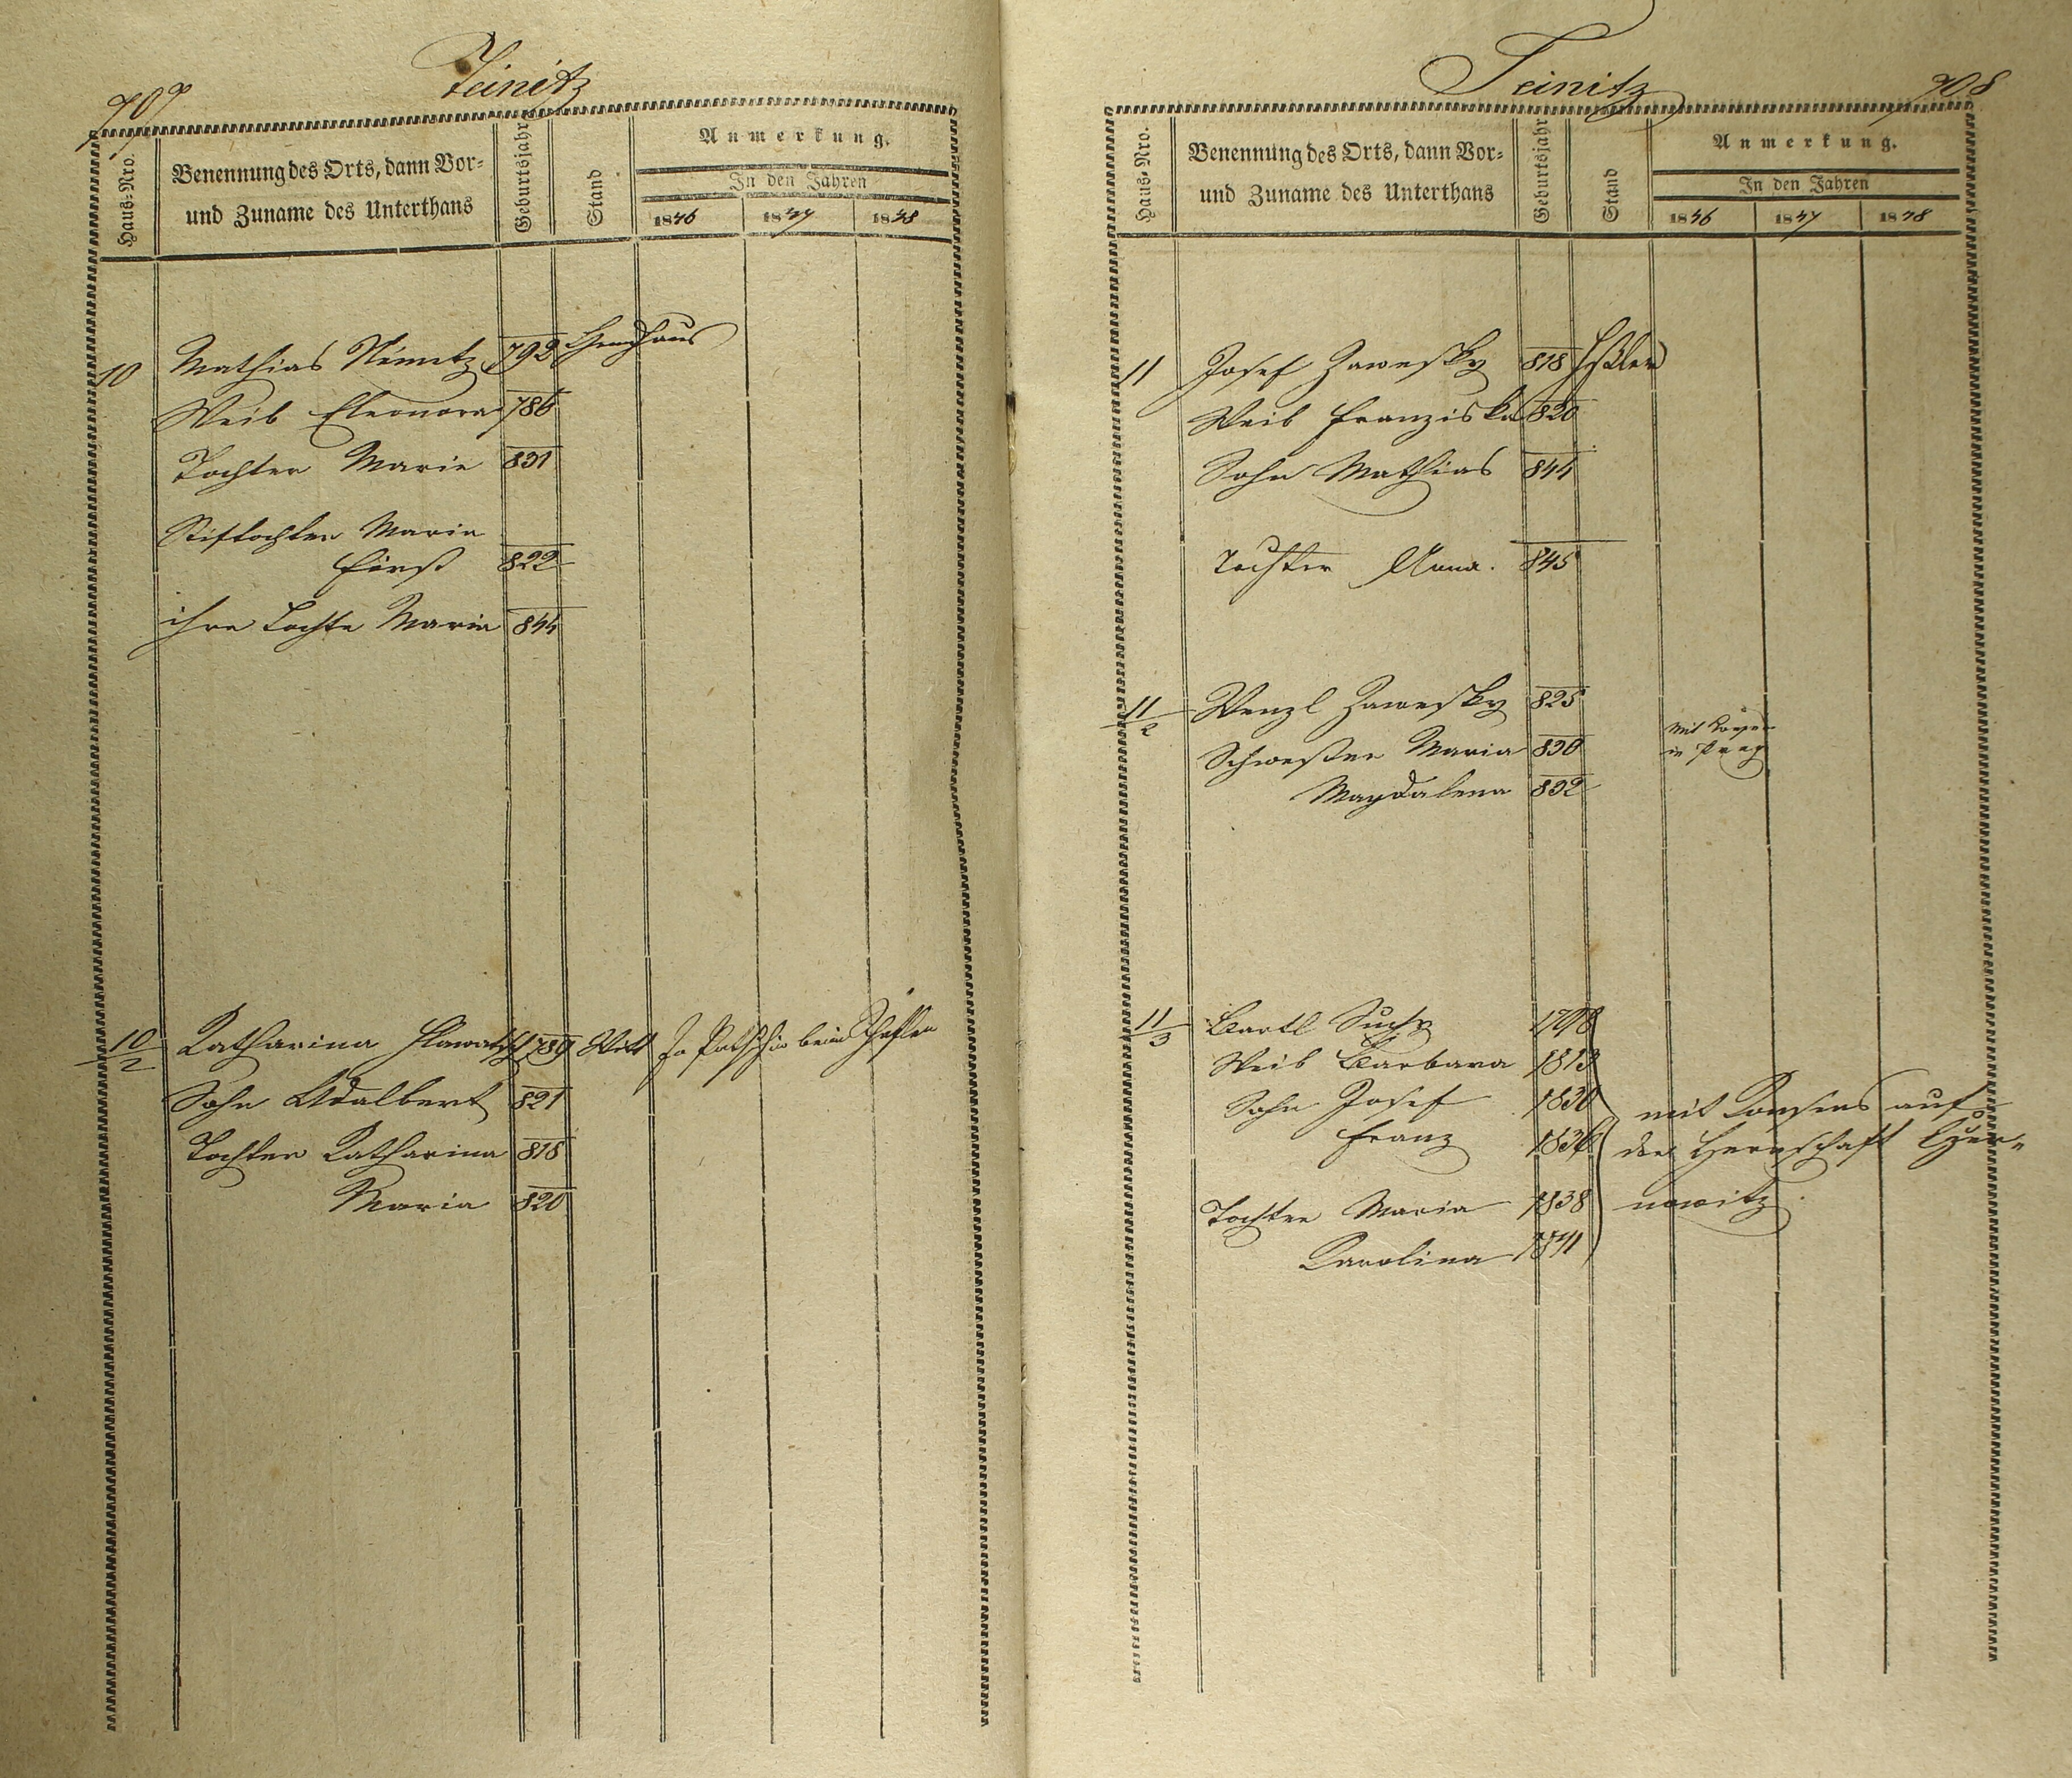 707
Teinitz
Haus-Nro.
Benennung des Orts, dann Vor-
und Zuname des Unterthans
Geburtsjahr
Stand
Anmerkung.
In den Jahren
1846 1847 1848
10 Mathias Němetz 792
Weib Eleonora 786
Tochter Marie 831
Stiftochter Maria
Fürst 822
ihre Tochte Maria 844
10/2 Katharina Hlawatsch 789 Witt
Sohn Adalbert 821
Tochter Katharina 818
Maria 820
Teinitz
708
Haus-Nro.
Benennung des Orts, dann Vor-
und Zuname des Unterthans
Geburtsjahr
Stand
Anmerkung.
In den Jahren
1846 1847 1848
11 Josef Zawesky 818
Weib Franziska 820
Sohn Mathias 844
Tochter Anna. 845
11/2 Wenzl Zawesky 825
Schwester Maria 830
Magdalena 832
mit
in Prag
11/3 Bartl Suchy 1798
Weib Barbara 1813
Sohn Josef 1830
Franz 1836
Tochter Maria 1838
Karolina 1841
mit Konsens auf
der Herrschaft
nowitz.